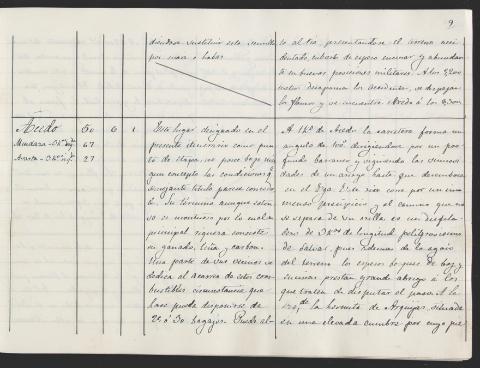 9
diendose sustituir esta semilla
por maiz ó habas.
to al rio, presentandose el terreno acci
dentado, cubierto de espeso encinar y abundan
te en buenas posiciones militares. A los
metros desaparecen los accidentes, se despeja
la llanura y se encuentra Acedo á los
Acedo 60 6 1
Mendaza 67
27
Este lugar designado en el
presente itinerario como pun
to de etapa, no posee bajo nin
gun concepto las condiciones q.
arrogante titulo parece conceder
lo. Su término aunque exten
so es montuoso por lo cual su
principal riqueza consiste
en ganado, leña y carbon.
Una parte de sus vecinos se
dedica al acarreo de estos com
bustibles circunstancia que
hace pueda disponerse de
20 ó 30 bagajes. Puede al-
A 1 K.o de Acedo la carretera forma un
angulo de dirigiendose por un pro
fundo barranco y siguiendo las sinuosi
dades de un arroyo hasta que desemboca
en el Ega. Este rio corre por un in
menso precipicio y el camino que no
se separa de su orilla es un desfila
dero de 3 K.s de longitud peligrosisimo
de salvar, pues ademas de lo agrio
del terreno lo espeso de boj y
encinas prestan grande abrigo á los
que traten de disputar el paso. A la
de la hermita de Arquijas, situada
en una elevada cumbre por cuyo pie